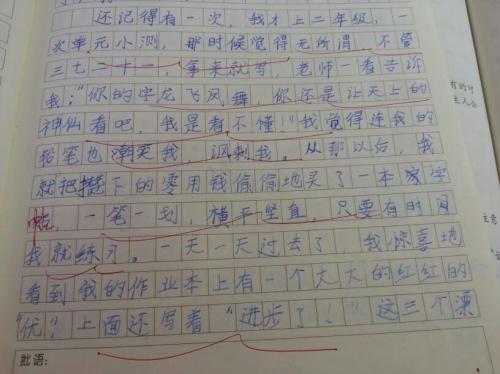 还记得有一次，我才上二年级，一
次单元小测，那时候觉得无所谓，不管
三七二十一，拿来就写，老师一看告诉
我："你的字龙飞凤舞，你还是让天上的
神仙看吧，我是看不懂！"我觉得连我的
铅笔也潮笑我，讽刺我。从那以后，我
就把攒下的零用钱偷偷地买了一本家字
帖，一笔一划，横平坚直，只要有时间
我就练习。一天一天过去了，我惊喜地
看到我的作业本上有一个大大的红红的
"优"，上面还写着"进步了！"这三个漂
批语：
有的可
主人公
主营